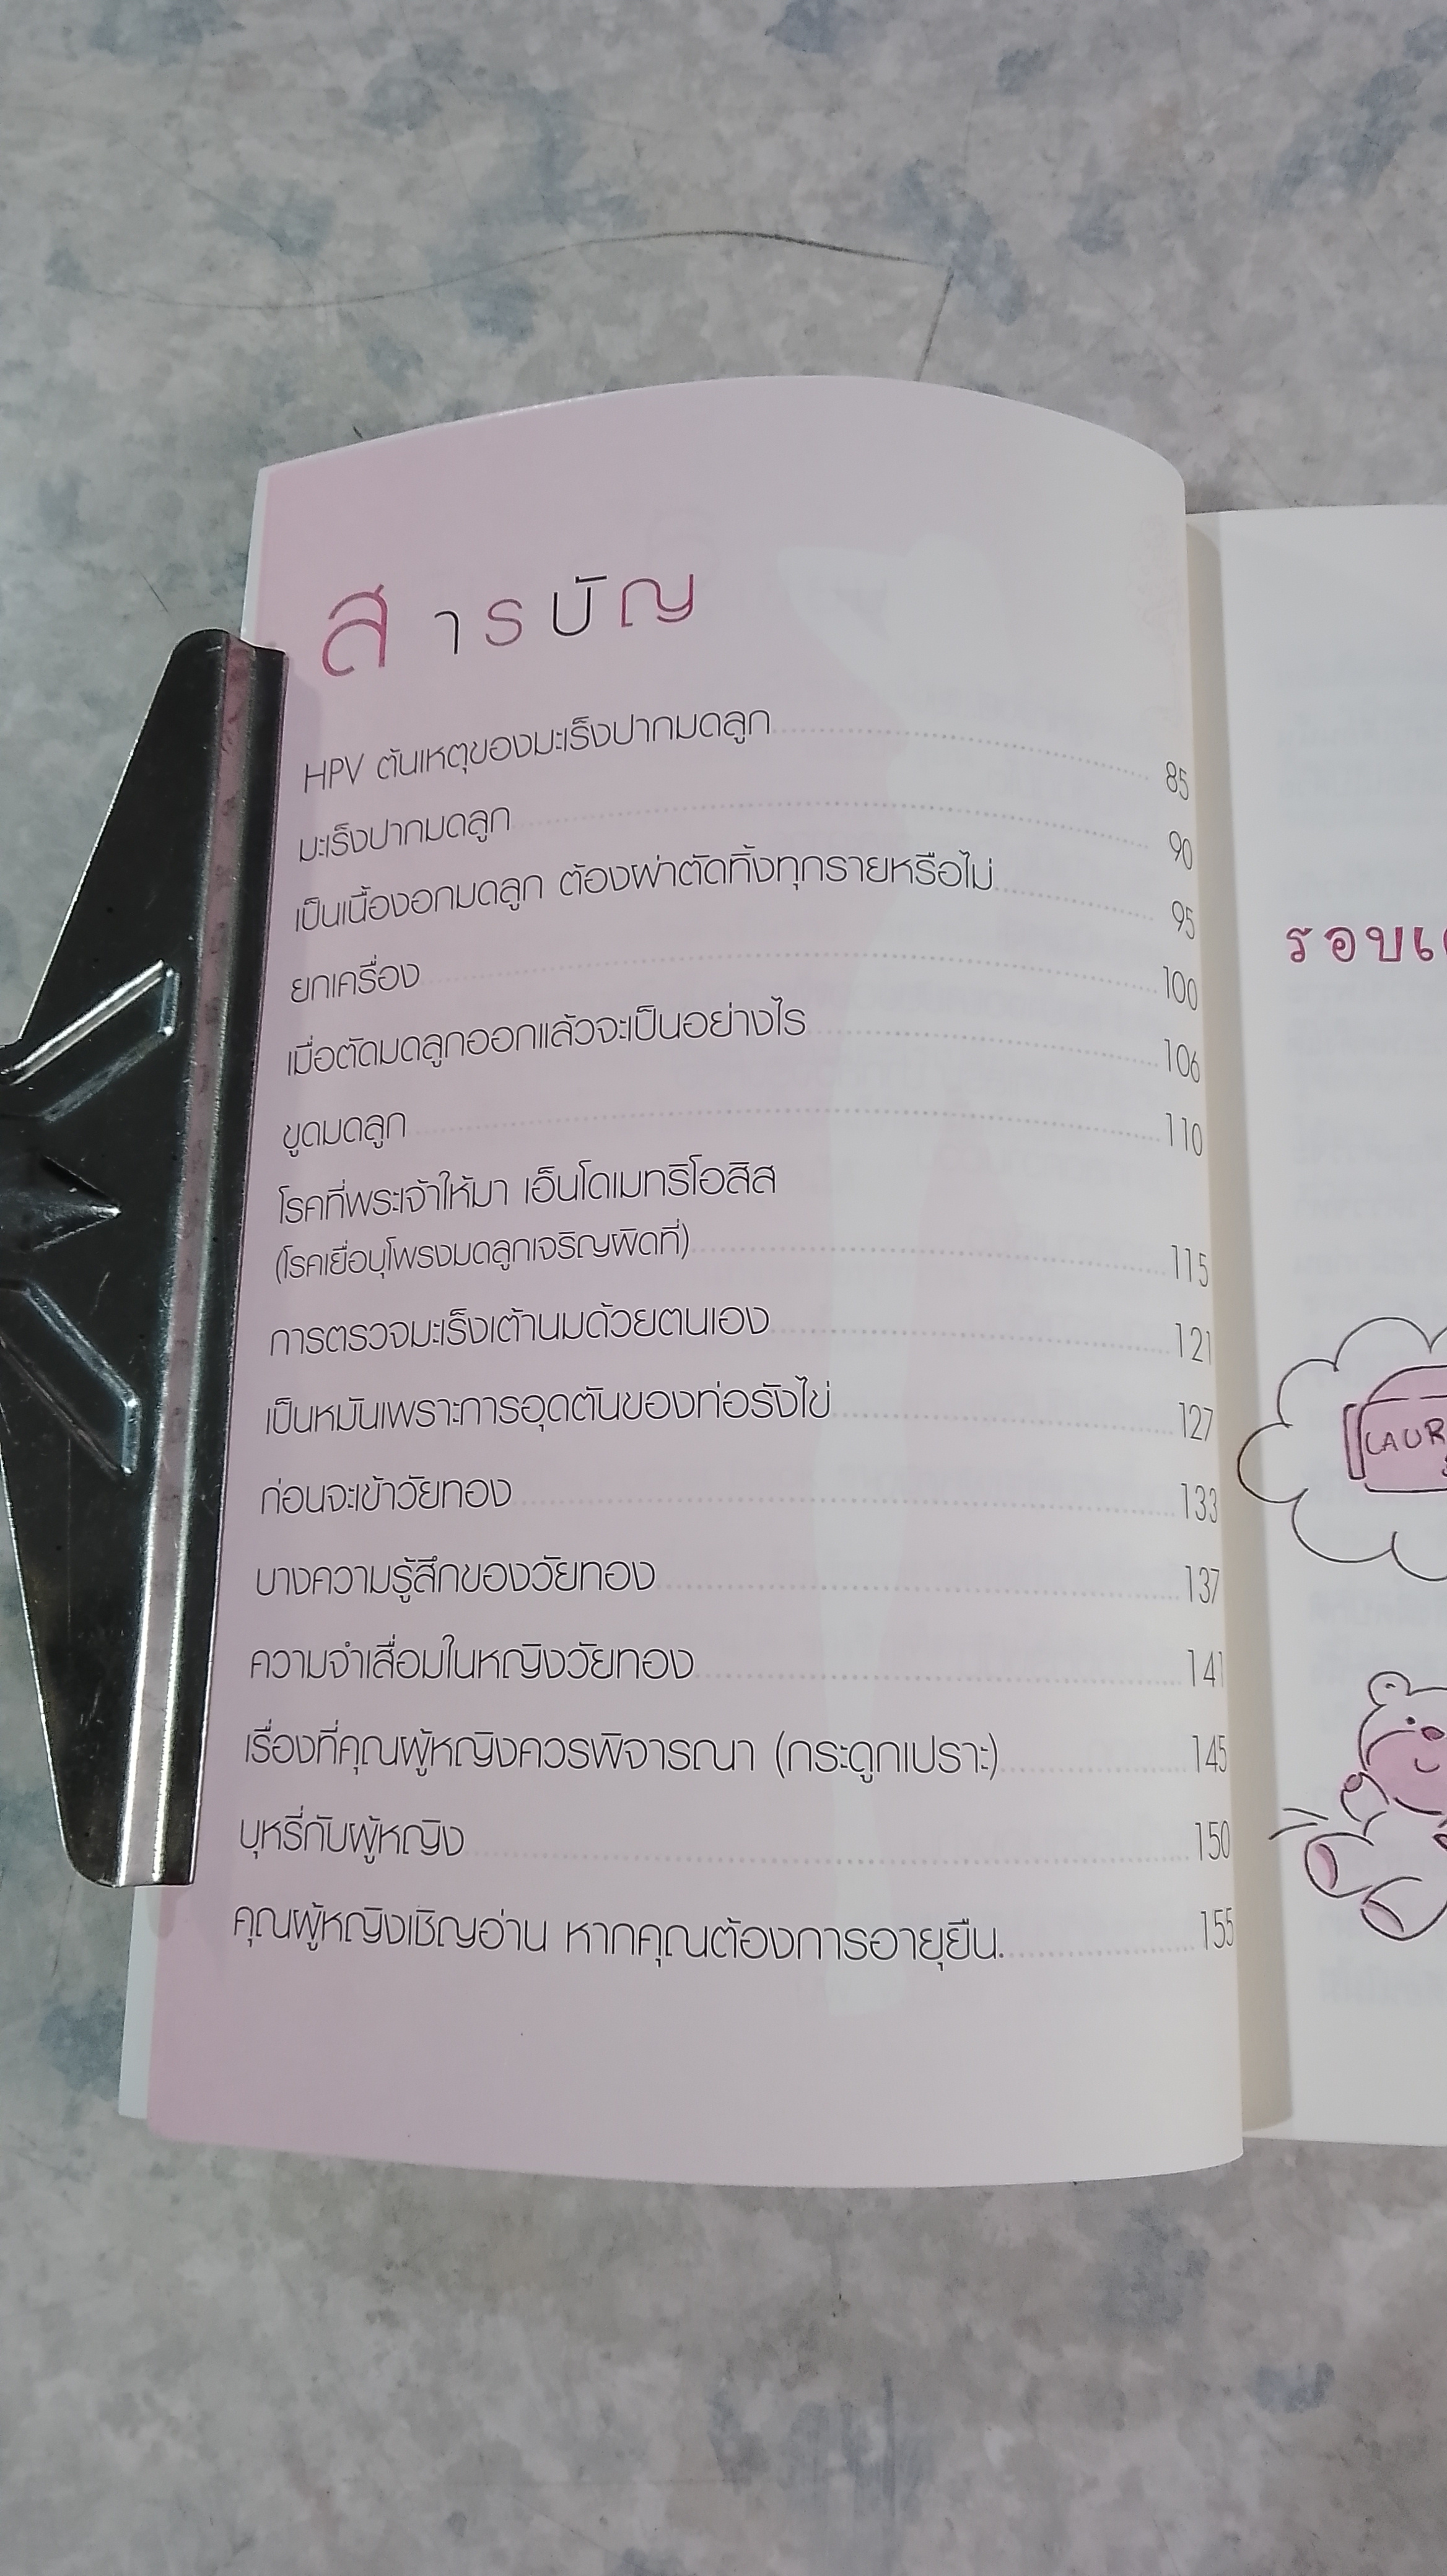 สารบัญ
HPV ต้นเหตุของมะเร็งปากมดลูก 85
มะเร็งปากมดลูก 90
เป็นเนื้องอกมดลูก ต้องผ่าตัดทิ้งทุกรายหรือไม่ 95
ยกเครื่อง 100
เมื่อตัดมดลูกออกแล้วจะเป็นอย่างไร 106
ขูดมดลูก 110
โรคที่พระเจ้าให้มา เอ็นโดเมทริโอสิส
(โรคเยื่อบุโพรงมดลูกเจริญผิดที่) 115
การตรวจมะเร็งเต้านมด้วยตนเอง 121
เป็นหมันเพราะการอุดตันของท่อรังไข่ 127
ก่อนจะเข้าวัยทอง 133
บางความรู้สึกของวัยทอง 137
ความจำเสื่อมในหญิงวัยทอง 141
เรื่องที่คุณผู้หญิงควรพิจารณา (กระดูกเปราะ) 145
บุหรี่กับผู้หญิง 150
คุณผู้หญิงเชิญอ่าน หากคุณต้องการอายุยืน 155